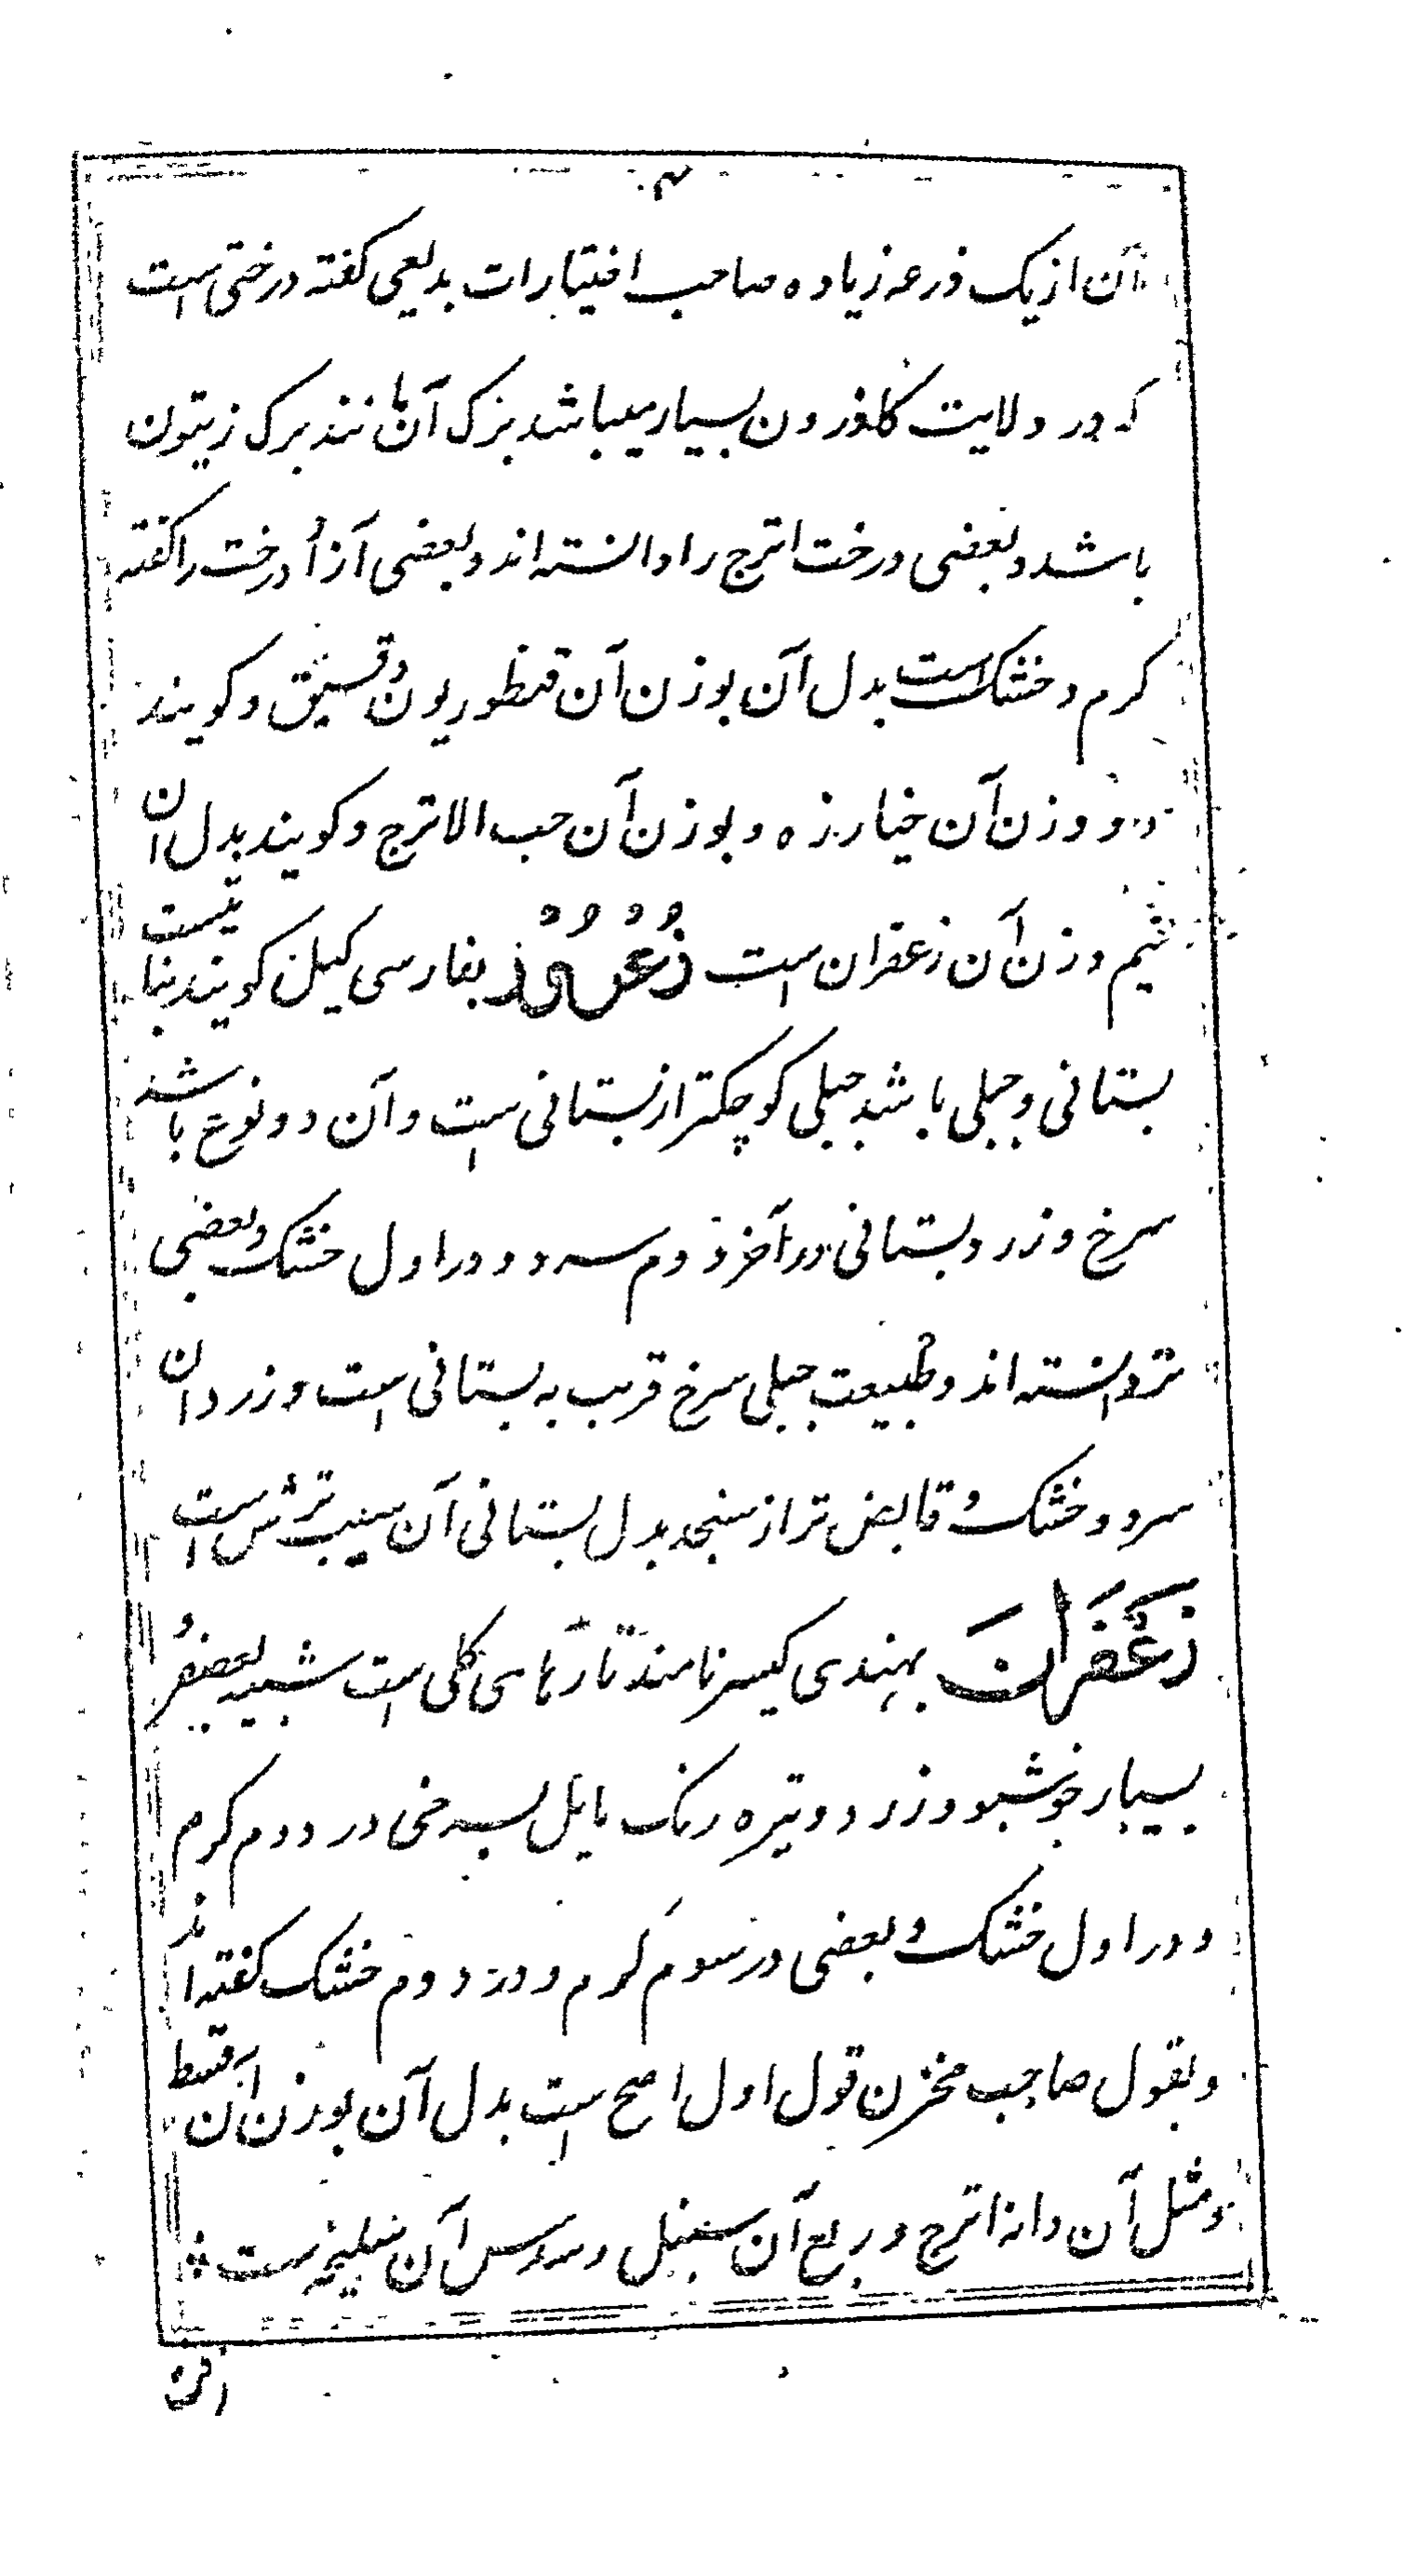 آن از یک ذرعه زیاده صاحب اختیارات بدیعی کفته درختی است
که در ولایت کاذرون بسیار میباشد برک آن مانند برک زیتون
باشد و بعضی درخت اترج را دانسته اند و بعضی آزاد درخت را کفته
کرم و خشک است بدل آن بوزن آن قنطوریون دقیق و کویند
دو وزن آن خیارزه و بوزن آن حب الاترج و کویند بدل ان
نیم وزن آن زعفران است زُعْرُوْرْ بفارسی کیلن کویند بناتیست
بستانی و جبلی باشد جبلی کوچکتر از بستانی است و آن دو نوع باشد
سرخ و زرد و بستانی در آخر دوم سرد و در اول خشک و بعضی
تر دانسته اند و طبیعت جبلی سرخ قریب به بستانی است و زرد ان
سرد و خشک و قابض تر از سنجد بدل بستانی آن سیب ترش است
زَعْفَرانَ بهندی کیسر نامند تارهای کلی است شبیه بعصفر و
بسیار خوشبو و زرد و تیره رنک مایل بسرخی در دوم کرم
و در اول خشک و بعضی در سوم کرم و در دوم خشک کفته اند
و بقول صاحب مخزن قول اول اصح است بدل آن بوزن آن قسط
و مثل آن دانه اترج و ربع آن سنبل و سدس آن سلیخه است